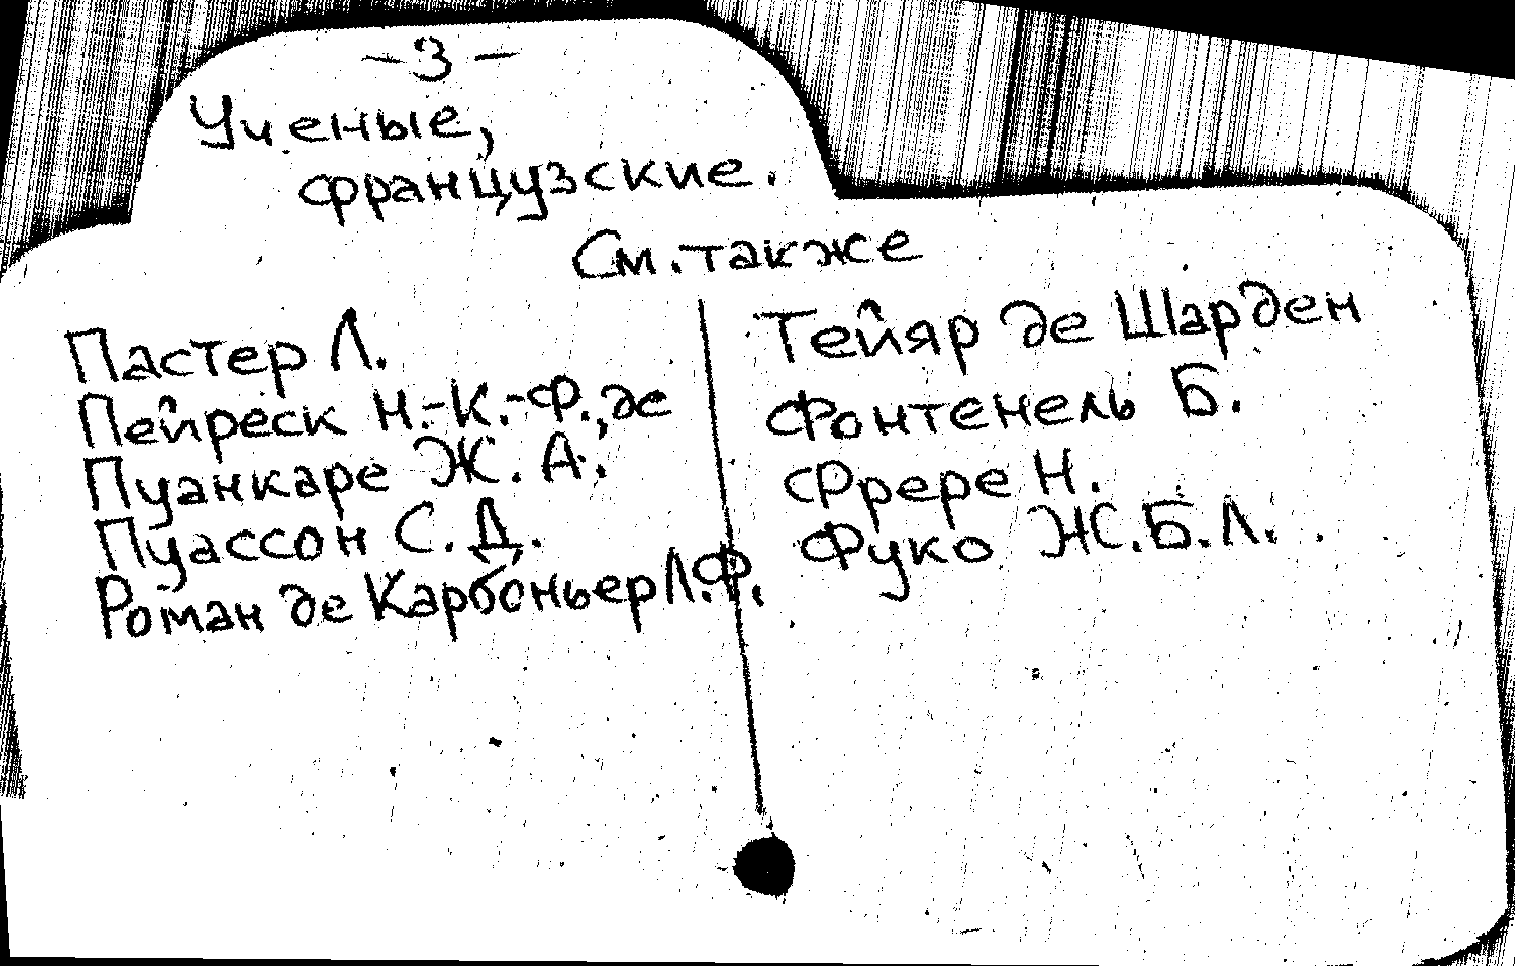 -3-
Ученые,
французские.
См. также
Пастер Л.
Пейреск Н.-К.-Ф., де
Пуанкаре Ж. А.
Пуассон С. Д.
Роман де Карбоньер Л.Ф.
Тейяр де Шарден
Фонтенель Б.
Фрере Н.
Фуко Ж.Б.Л.